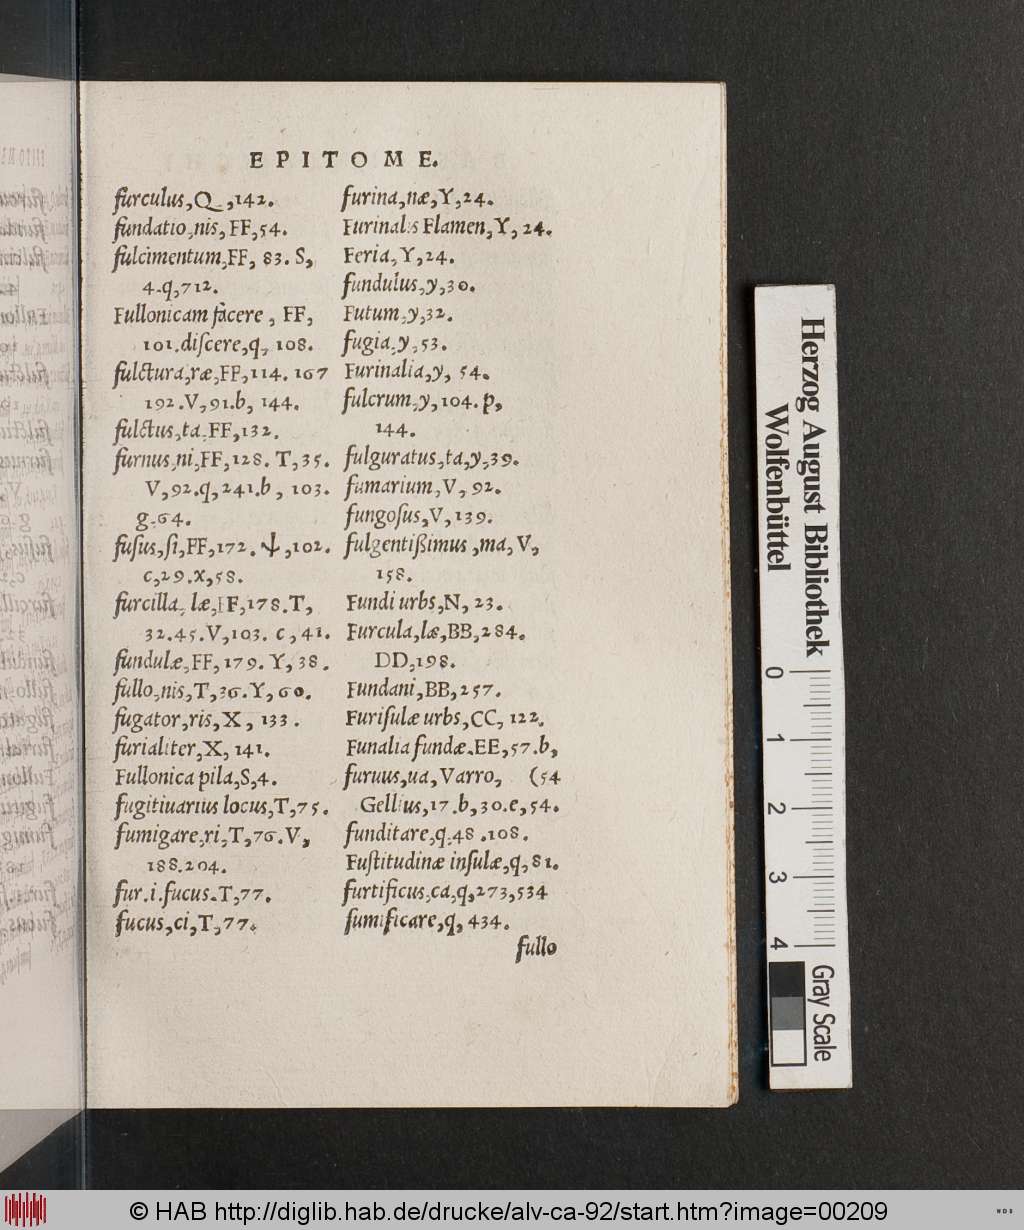 EPITOME.
furculus, Q, 142.
fundatio, nis, FF, 54.
fulcimentum, FF, 83. S,
4. q, 712.
Fullonicam facere, FF,
101. discere, q, 108.
fulctura, ræ, FF, 114. 167
192. V, 91. b, 144.
fulctus, ta, FF, 132.
furnus, ni, FF, 128. T, 35.
V, 92. q, 241. b, 103.
g. 64.
fusus, si, FF, 172. , 102.
c, 29. x, 58.
furcilla, læ, FF, 178. T,
32. 45. V, 103. c, 41.
fundulæ, FF, 179. Y, 38.
fullo, nis, T, 36. Y, 60.
fugator, ris, X, 133.
furialiter, X, 141.
Fullonica pila, S, 4.
fugitiuarius locus, T, 75.
fumigare, ri, T, 76. V,
188. 204.
fur. i. fucus. T, 77.
fucus, ci, T, 77.
furina, næ, Y, 24.
Furinalis Flamen, Y, 24.
Feria, Y, 24.
fundulus, y, 30.
Futum, y, 32.
fugia, y, 53.
Furinalia, y, 54.
fulcrum, y, 104. p,
144.
fulguratus, ta, y, 39.
fumarium, V, 92.
fungosus, V, 139.
fulgentißimus, ma, V,
158.
Fundi urbs, N, 23.
Furcula, læ, BB, 284.
DD, 198.
Fundani, BB, 257.
Furisulæ urbs, CC, 122.
Funalia fundæ. EE, 57. b,
furuus, ua, Varro, (54
Gellius, 17. b, 30. e, 54.
funditare, q, 48. 108.
Fustitudinæ insulæ, q, 81.
furtificus, ca, q, 273, 534
fumificare, q, 434.
fullo
Herzog August Bibliothek
Wolfenbüttel
0 1 2 3 4
Gray Scale
© HAB http://diglib.hab.de/drucke/alv-ca-92/start.htm?image=00209